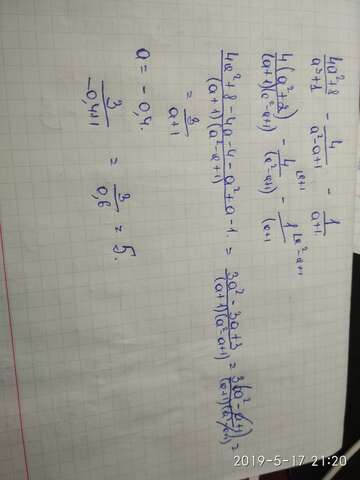 4a²+8/a³+1 - 4/a²-a+1 - 1/a+1
4(a²+2)/(a+1)(a²-a+1) - 4/(a²-a+1) - 1/(a+1
4a²+8-4a-4-a²+a-1/(a+1)(a²-a+1) = 3a²-3a+3/(a+1)(a²-a+1) = 3(a²-a+1)/(a+1)(a²-a+1) =
= 3/a+1
a = -0,4.
3/-0,4+1 = 3/0,6 = 5.
2019-5-17 21:20